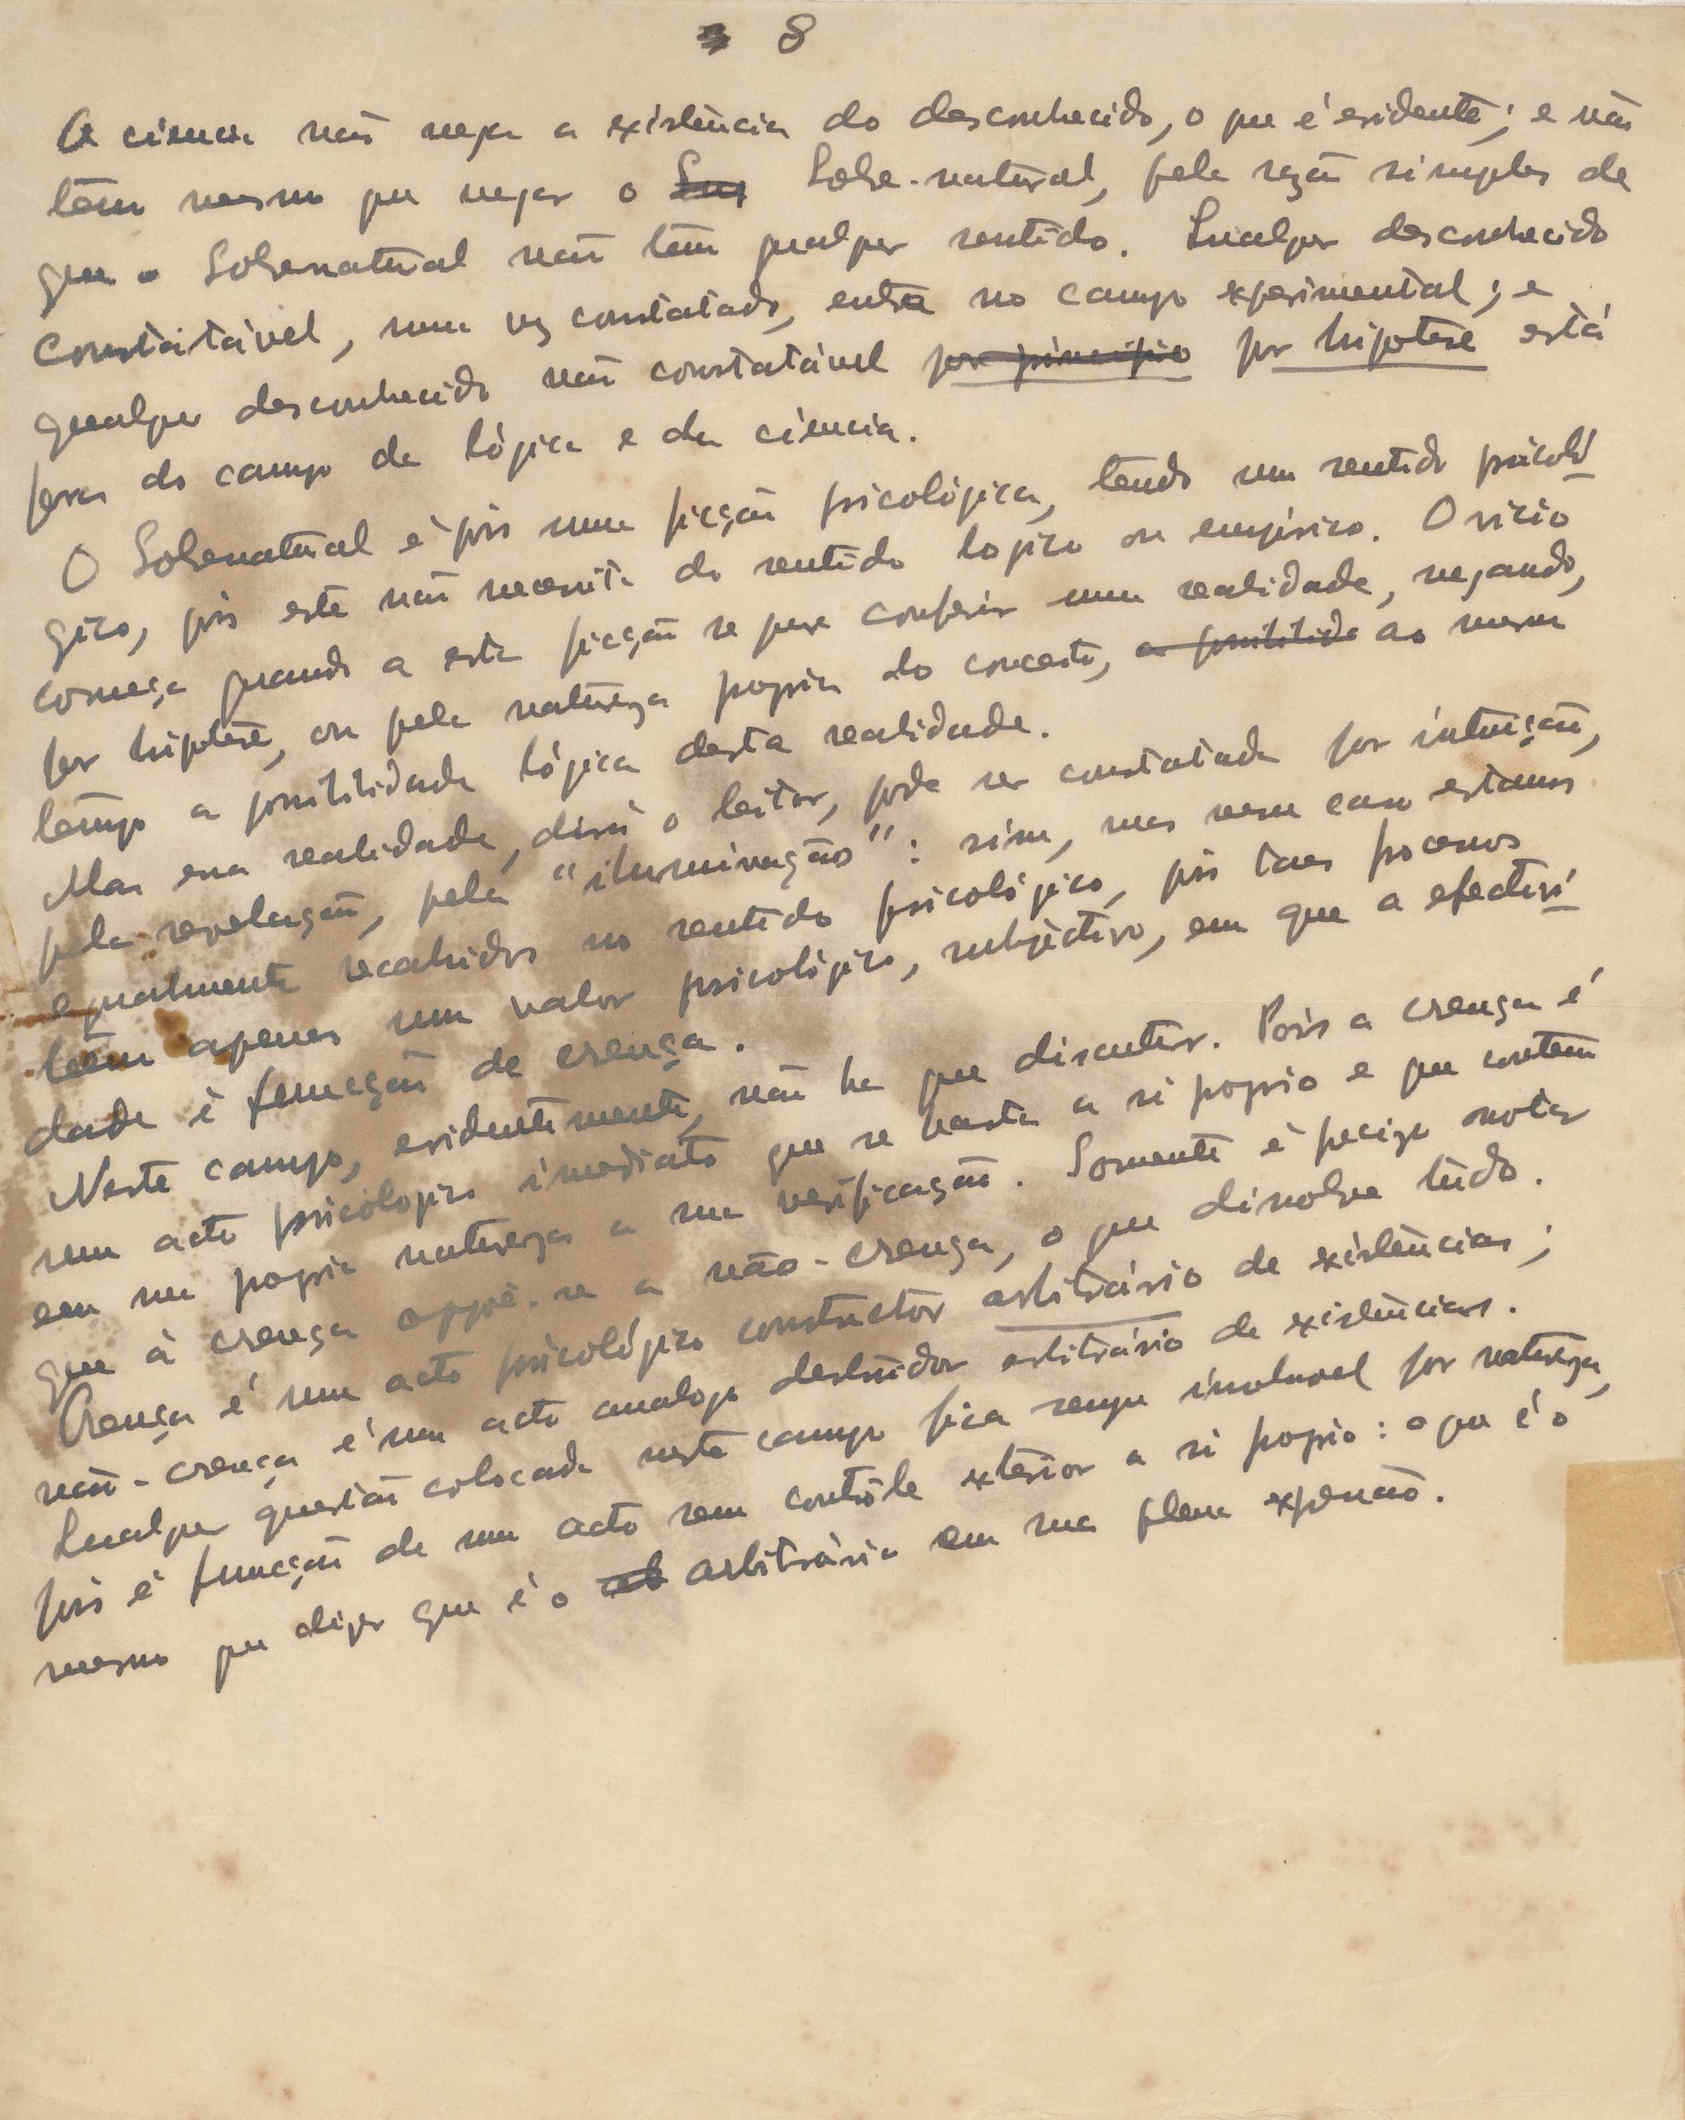 8
A ciencia não nega a existência do desconhecido, o que é evidente; e não
têm mesmo que negar o Sobre-natural, pela razão simples de
que o Sobrenatural não têm qualquer sentido. Qualquer desconhecido
constatável, uma vez constatado, entra no campo experimental; e
qualquer desconhecido não constatável por principio por hipotese está
fora do campo da lógica e da ciencia.
O Sobrenatural é pois uma ficção psicológica, tendo um sentido psicoló
gico, pois este não necessita do sentido logico ou empirico. O vicio
começa quando a esta ficção se quer conferir uma realidade, negando,
por hipotese, ou pela natureza propria do conceito, a possibilida ao mesmo
tempo a possibilidade lógica desta realidade.
Mas essa realidade, dirá o leitor, pode ser constatada por intuição,
pela revelação, pela "iluminação": sim, mas nesse caso estamos
egualmente recahidos no sentido psicológico, pois taes processos
têem apenas um valor psicológico, subjectivo, em que a efectivi
dade é funcção de crença.
Neste campo, evidentemente, não ha que discutir. Pois a crença é
um acto psicologico imediato que se basta a si proprio e que contem
em sua propria natureza a sua verificação. Somente é preciso notar
que à crença oppõe-se a não-crença, o que dissolve tudo.
Crença é um acto psicológico constructor arbitrário de existências;
não-crença é um acto analogo destruidor arbitrário de existências.
Qualquer questão colocada neste campo fica sempre insoluvel por natureza,
pois é funcção de um acto sem contrôle exterior a si proprio: o que é o
mesmo que dizer que é o arbitrário em sua plena expansão.